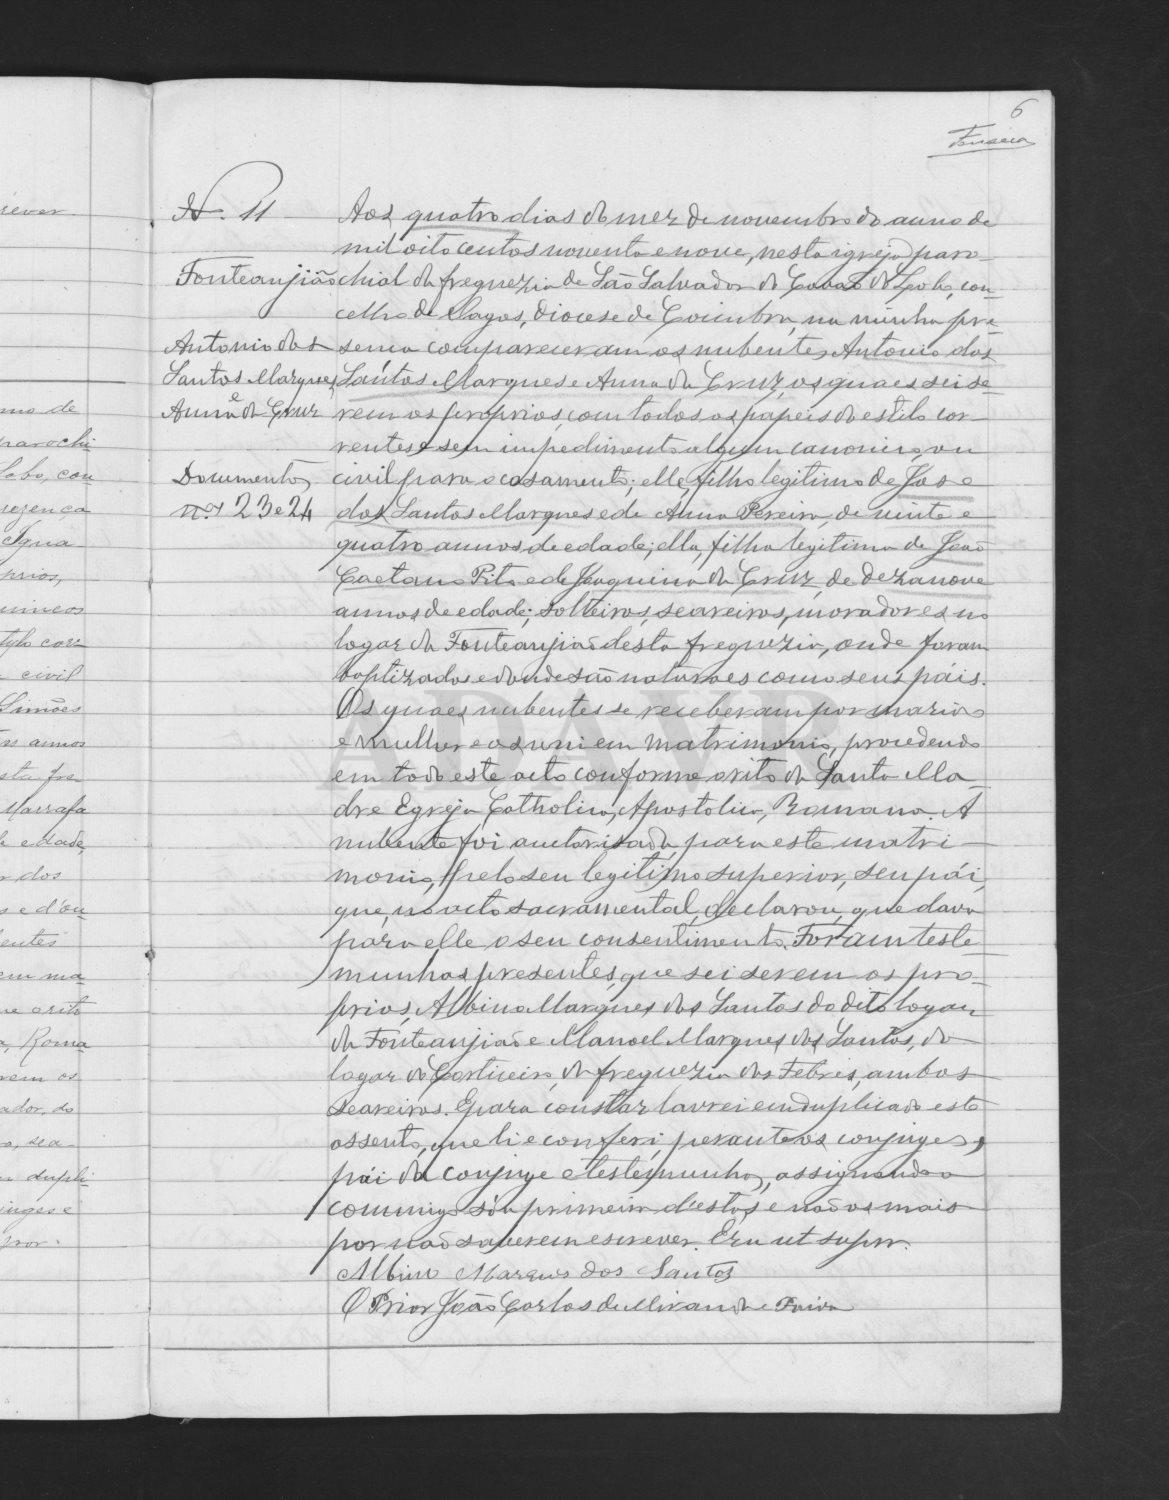 6
Fonseca
N.º 11
Fonteanjião
Antonio dos
Santos Marques
e
Anna da Cruz
Documentos
n.os 23 e 24
Aos quatro dias do mez de novembro do anno de
mil oito centos noventa e nove, nesta igreja paro-
chial da freguezia de São Salvador do Covão do Lobo, con-
celho de Vagos, diocese de Coimbra, na minha pre-
sença compareceram os nubentes Antonio dos
Santos Marques e Anna da Cruz, os quaes sei se-
rem os proprios, com todos os papeis do estilo cor-
rentes e sem impedimento algum canonico, ou
civil para o casamento; elle, filho legitimo de Jose
dos Santos Marques e de Anna Pereira, de vinte e
quatro annos de edade; ella, filha legitima de João
Caetano Pito e de Joaquina da Cruz, de dezanove
annos de edade; solteiros, seareiros, moradores no
logar da Fonteanjião desta freguezia, onde foram
baptizados e donde são naturaes como seus páis.
Os quaes nubentes se receberam por marido
e mulher e os uni em matrimonio, procedendo
em todo este acto conforme o rito da Santa Ma-
dre Egreja Catholica, Apostolica, Romana. A
nubente foi auctorisada, para este matri-
monio, pelo seu legitimo superior, seu pái,
que, no acto sacramental, declarou, que dava
para elle o seu consentimento. Foram teste-
munhas presentes, que sei serem os pro-
prios, Albino Marques dos Santos do dito logar
da Fonteanjião e Manoel Marques dos Santos, do
logar do Corticeiro, da freguezia das Febres, ambos
seareiros. E para constar lavrei em duplicado este
assento, que li e conferi, perante os conjuges,
pái da conjuge e testemunhas, assignando-o
commigo só a primeira d'estas, e não os mais
por não saberem escrever. Era ut supra.
Albino Marques dos Santos
O Prior João Carlos de Miranda e Faiva